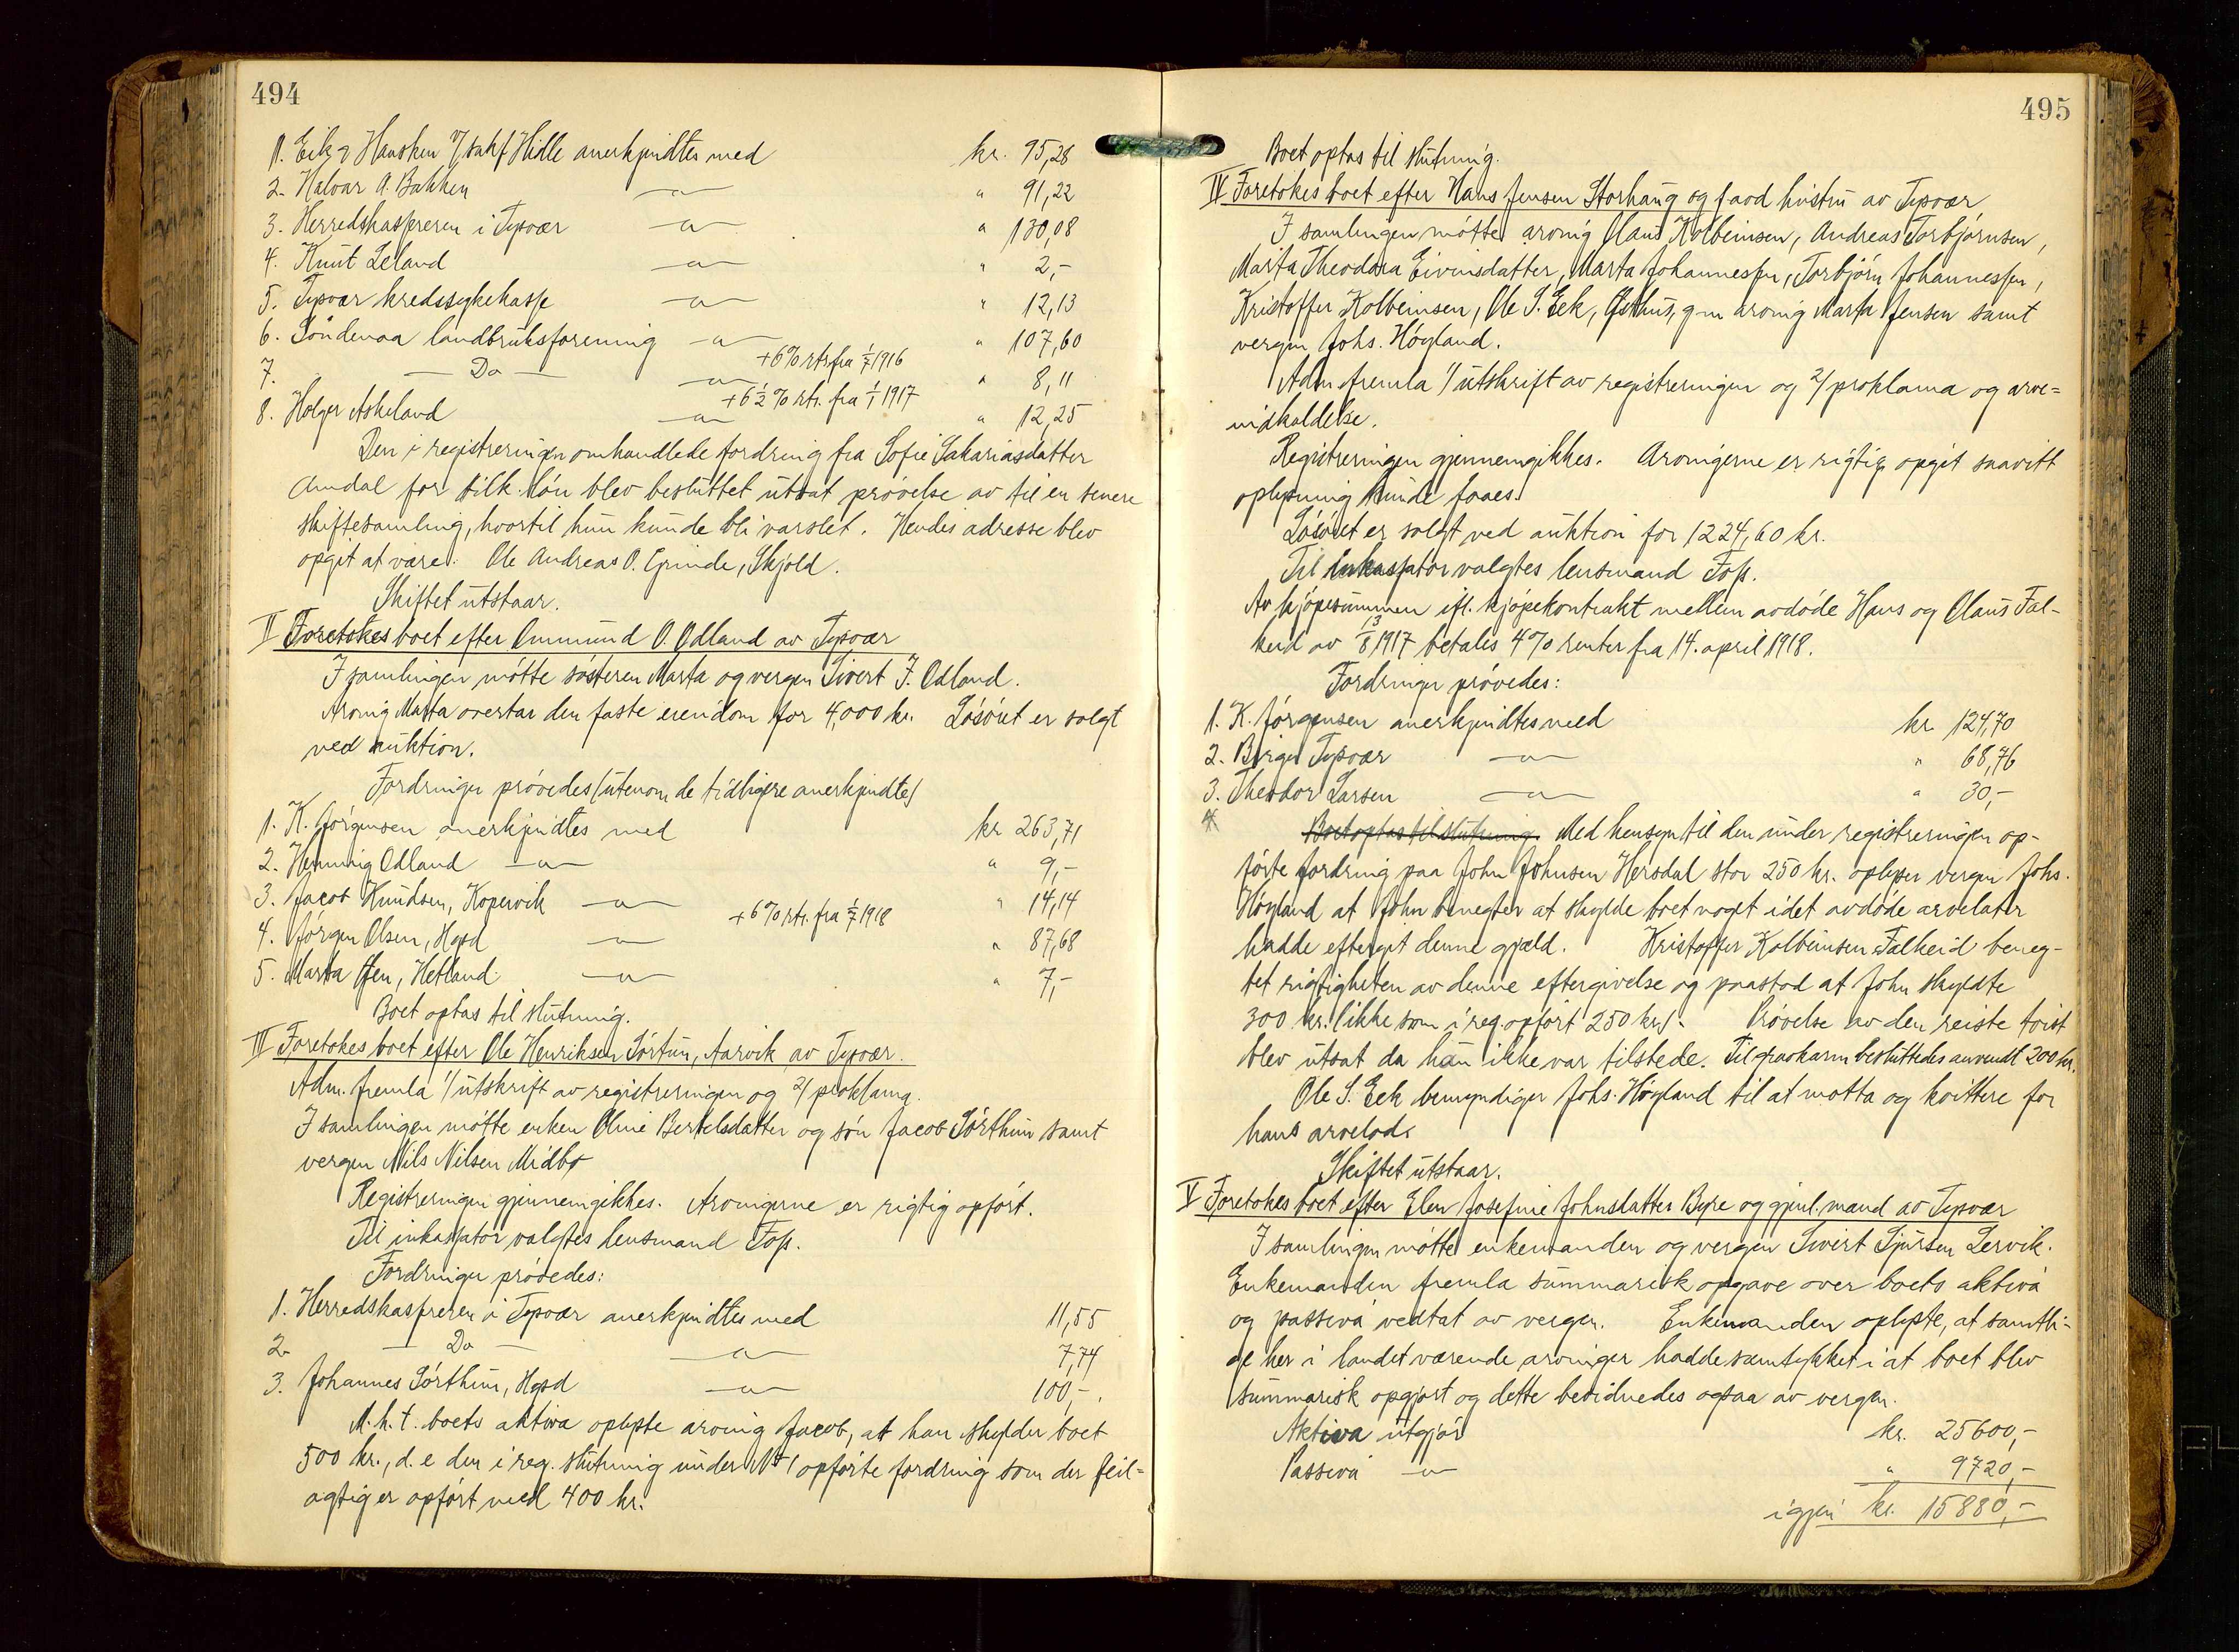 494
1. Eik & Hausken v/sakf Hille anerkjendtes med kr. 95,28
2. Halvar A. Bakken —"— " 91,22
3. Herredskasseren i Tysvær —"— " 130,08
4. Knut Leland —"— " 2,-
5. Tysvær kredssykekasse —"— " 12,13
6. Söndenaa landbruksforening —"— " 107,60
+6% rtr. fra 1/7 1916
7. — Do — —"— " 8,11
+6½% rtr. fra 1/1 1917
8. Holger Askeland —"— " 12,25
Den i registreringen omhandlede fordring fra Sofie Sakariasdatter
Amdal for tilk. lön blev besluttet utsat prövelse av til en senere
skiftesamling, hvortil hun kunde bli varslet. Hendes adresse blev
opgit at være: Ole Andreas O. Grinde, Skjold.
Skiftet utstaar.
II Foretokes boet efter Ommund O. Odland av Tysvær
I samlingen mötte sösteren Marta og vergen Sivert J. Odland.
Arving Marta overtar den faste eiendom for 4,000 kr. Lösöret er solgt
ved auktion.
Fordringer prövedes (utenom de tidligere anerkjendte)
1. K. Jörgensen anerkjendtes med kr 263,71
2. Henning Odland —"— " 9,-
3. Jacob Knudsen, Kopervik —"— " 14,14
+6% rtr. fra 1/7 1918
4. Jörgen Olsen, Hgsd —"— " 87,68
5. Marta Hetland —"— " 7,-
Boet optas til slutning.
III Foretokes boet efter Ole Henriksen Sörtun, Aarvik av Tysvær.
Adm. fremla 1/ utskrift av registreringen og 2/ proklama.
I samlingen mötte enken Oline Bertelsdatter og sön Jacob Sörthun samt
vergen Nils Nilsen Midbø
Registreringen gjennemgikkes. Arvingerne er rigtig opfört.
Til inkassator valgtes lensmand Foss.
Fordringer prövedes:
1. Herredskasseren i Tysvær anerkjendtes med 11,55
2. — Do — —"— 7,74
3. Johannes Sörthun, Hgsd —"— 100,-.
M.h.t. boets aktiva oplyste arving Jacob, at han skylder boet
500 kr., d.e. den i reg. slutning under No 1 opförte fordring som der feil-
agtig er opfört med 400 kr.
495
Boet optas til slutning.
IV Foretokes boet efter Hans Jensen Storhaug og favd hustru av Tysvær
I samlingen mötte arving Olaus Kolbeinsen, Andreas Torbjörnsen,
Marta Theodora Eivinsdatter, Marta Johannessen, Torbjörn Johannessen,
Kristoffer Kolbeinsen, Ole S. Eek, Östhus, g.m. arving Marta Jensen samt
vergen Johs. Høyland.
Adm. fremla 1/ utskrift av registreringen og 2/ proklama og arve-
indkaldelse.
Registreringen gjennemgikkes. Arvingerne er rigtig opgit saavitt
oplysning kunde faaes.
Lösöret er solgt ved auktion for 1224,60 kr.
Til inkassator valgtes lensmand Foss.
Av kjöpesummen ifl. kjöpekontrakt mellem avdöde Hans og Olaus Fal-
keid av 13/8 1917 betales 4% renter fra 14. april 1918.
Fordringer prövedes:
1. K. Jörgensen anerkjendtes med kr 124,70
2. Birger Tysvær —"— " 68,76
3. Theodor Larsen —"— " 30,-
4. Boet optas til slutning. Med hensyn til den under registreringen op-
förte fordring paa John Johnsen Hersdal stor 250 kr. oplyser vergen Johs.
Høyland at John benegter at skylde boet noget idet avdöde arvelater
hadde eftergit denne gjæld. Kristoffer Kolbeinsen Falkeid beneg-
tet rigtigheten av denne eftergivelse og paastod at John skyldte
300 kr. (ikke som i reg. opfört 250 kr.). Prövelse av den reiste tvist
blev utsat da han ikke var tilstede. Til gravkarm besluttedes anvendt 200 kr.
Ole S. Eek bemyndiger Johs. Høyland til at motta og kvittere for
hans arvelod.
Skiftet utstaar.
V Foretokes boet efter Elen Josefine Johnsdatter Byre og gjenl. mand av Tysvær
I samlingen mötte enkemanden og vergen Sivert Sjursen Lervik.
Enkemanden fremla summarisk opgave over boets aktiva
og passiva vedtat av vergen. Enkemanden oplyste, at samtli-
ge her i landet værende arvinger hadde samtykket i at boet blev
summarisk opgjort og dette bevidnedes ogsaa av vergen.
Aktiva utgjör kr. 25600,-
Passiva —"— " 9720,-
igjen kr. 15880,-